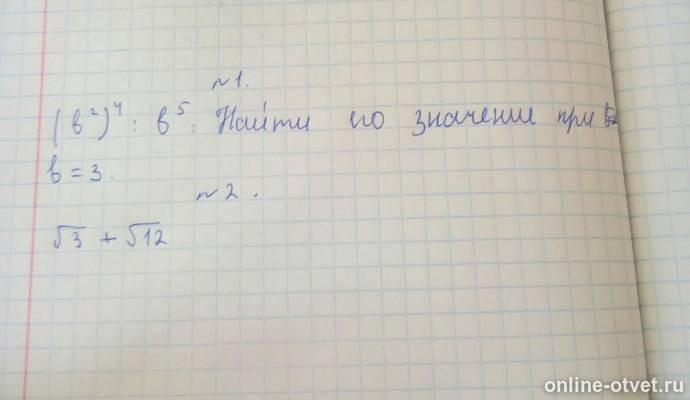 №1.
(b²)⁴ : b⁵. Найти его значение при
b = 3.
№2.
√3 + √12
online-otvet.ru